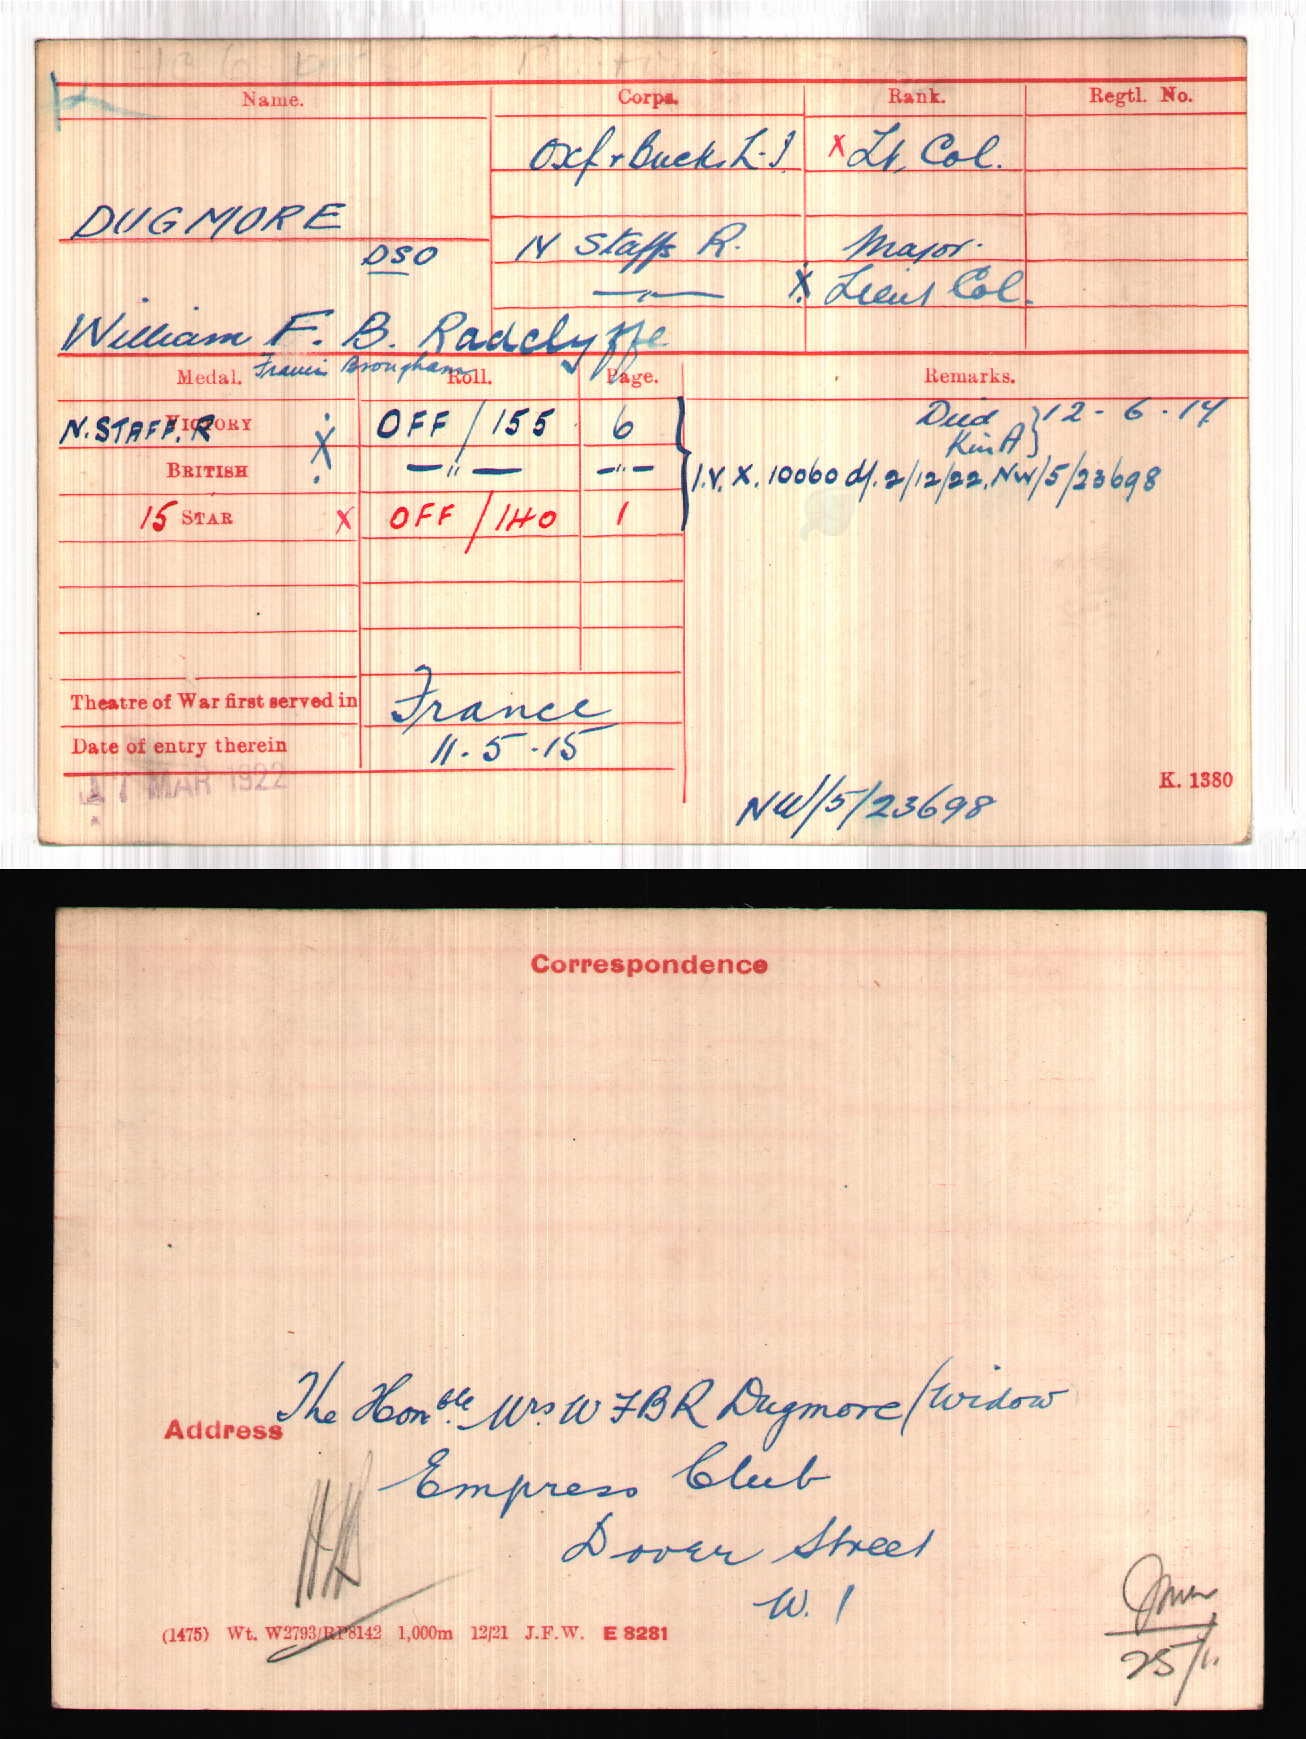 Name. Corps. Rank. Regtl. No.
Oxf & Buck. L.I. X Lt. Col.
DUGMORE
DSO
N Staffs R. Major.
—"— X Lieut Col.
William F. B. Radclyffe
Francis Brougham
Medal. Roll. Page. Remarks.
VICTORY N. STAFF. R X OFF/155 6
Died } 12-6-17
Kin A }
BRITISH —"— —"— I.V. X. 10060 d/. 2/12/22. NW/5/23698
15 STAR X OFF/140 1
Theatre of War first served in France
Date of entry therein 11-5-15
17 MAR 1922
K. 1380
NW/5/23698
Correspondence
Address The Honble. Mrs W F B R Dugmore/Widow
Empress Club
Dover Street
W. 1
(1475) Wt. W2793/RP8142 1,000m 12/21 J.F.W. E 8281
25/1.